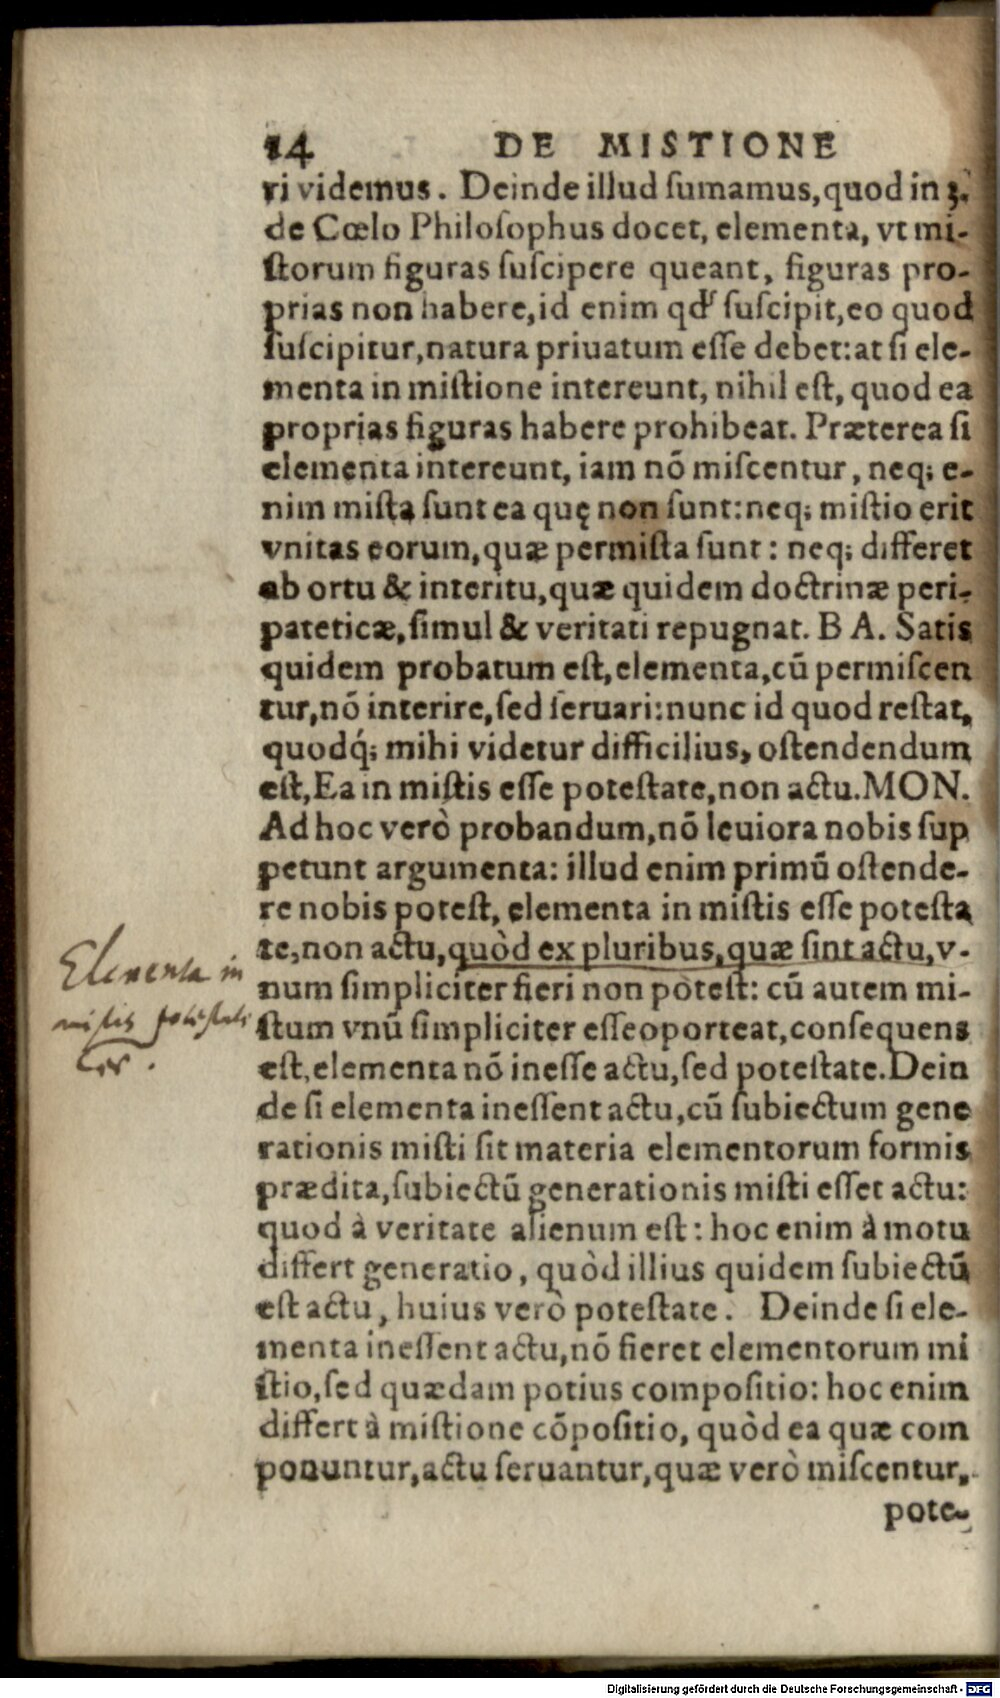 14 DE MISTIONE
ri videmus. Deinde illud ſumamus, quod in 3.
de Cœlo Philoſophus docet, elementa, vt mi-
ſtorum figuras ſuſcipere queant, figuras pro-
prias non habere, id enim qđ ſuſcipit, eo quod
ſuſcipitur, natura priuatum eſſe debet: at ſi ele-
menta in miſtione intereunt, nihil eſt, quod ea
proprias figuras habere prohibeat. Præterea ſi
elementa intereunt, iam nõ miſcentur, neq; e-
nim miſta ſunt ea quę non ſunt: neq; miſtio erit
vnitas eorum, quæ permiſta ſunt: neq; differet
ab ortu & interitu, quæ quidem doctrinæ peri-
pateticæ, ſimul & veritati repugnat. B A. Satis
quidem probatum eſt, elementa, cũ permiſcen
tur, nõ interire, ſed ſeruari: nunc id quod reſtat,
quodq́; mihi videtur difficilius, oſtendendum
eſt, Ea in miſtis eſſe poteſtate, non actu. MON.
Ad hoc verò probandum, nõ leuiora nobis ſup
petunt argumenta: illud enim primũ oſtende-
re nobis poteſt, elementa in miſtis eſſe poteſta
te, non actu, quòd ex pluribus, quæ ſint actu, v-
num ſimpliciter fieri non poteſt: cũ autem mi-
ſtum vnũ ſimpliciter eſſe oporteat, conſequens
eſt, elementa nõ ineſſe actu, ſed poteſtate. Dein
de ſi elementa ineſſent actu, cũ ſubiectum gene
rationis miſti ſit materia elementorum formis
prædita, ſubiectũ generationis miſti eſſet actu:
quod à veritate alienum eſt: hoc enim à motu
differt generatio, quòd illius quidem ſubiectũ
eſt actu, huius verò poteſtate. Deinde ſi ele-
menta ineſſent actu, nõ fieret elementorum mi
ſtio, ſed quædam potius compoſitio: hoc enim
differt à miſtione cõpoſitio, quòd ea quæ com
ponuntur, actu ſeruantur, quæ verò miſcentur,
pote-
Elementa in
miſtis poteſtati
Digitalisierung gefördert durch die Deutsche Forschungsgemeinschaft - DFG